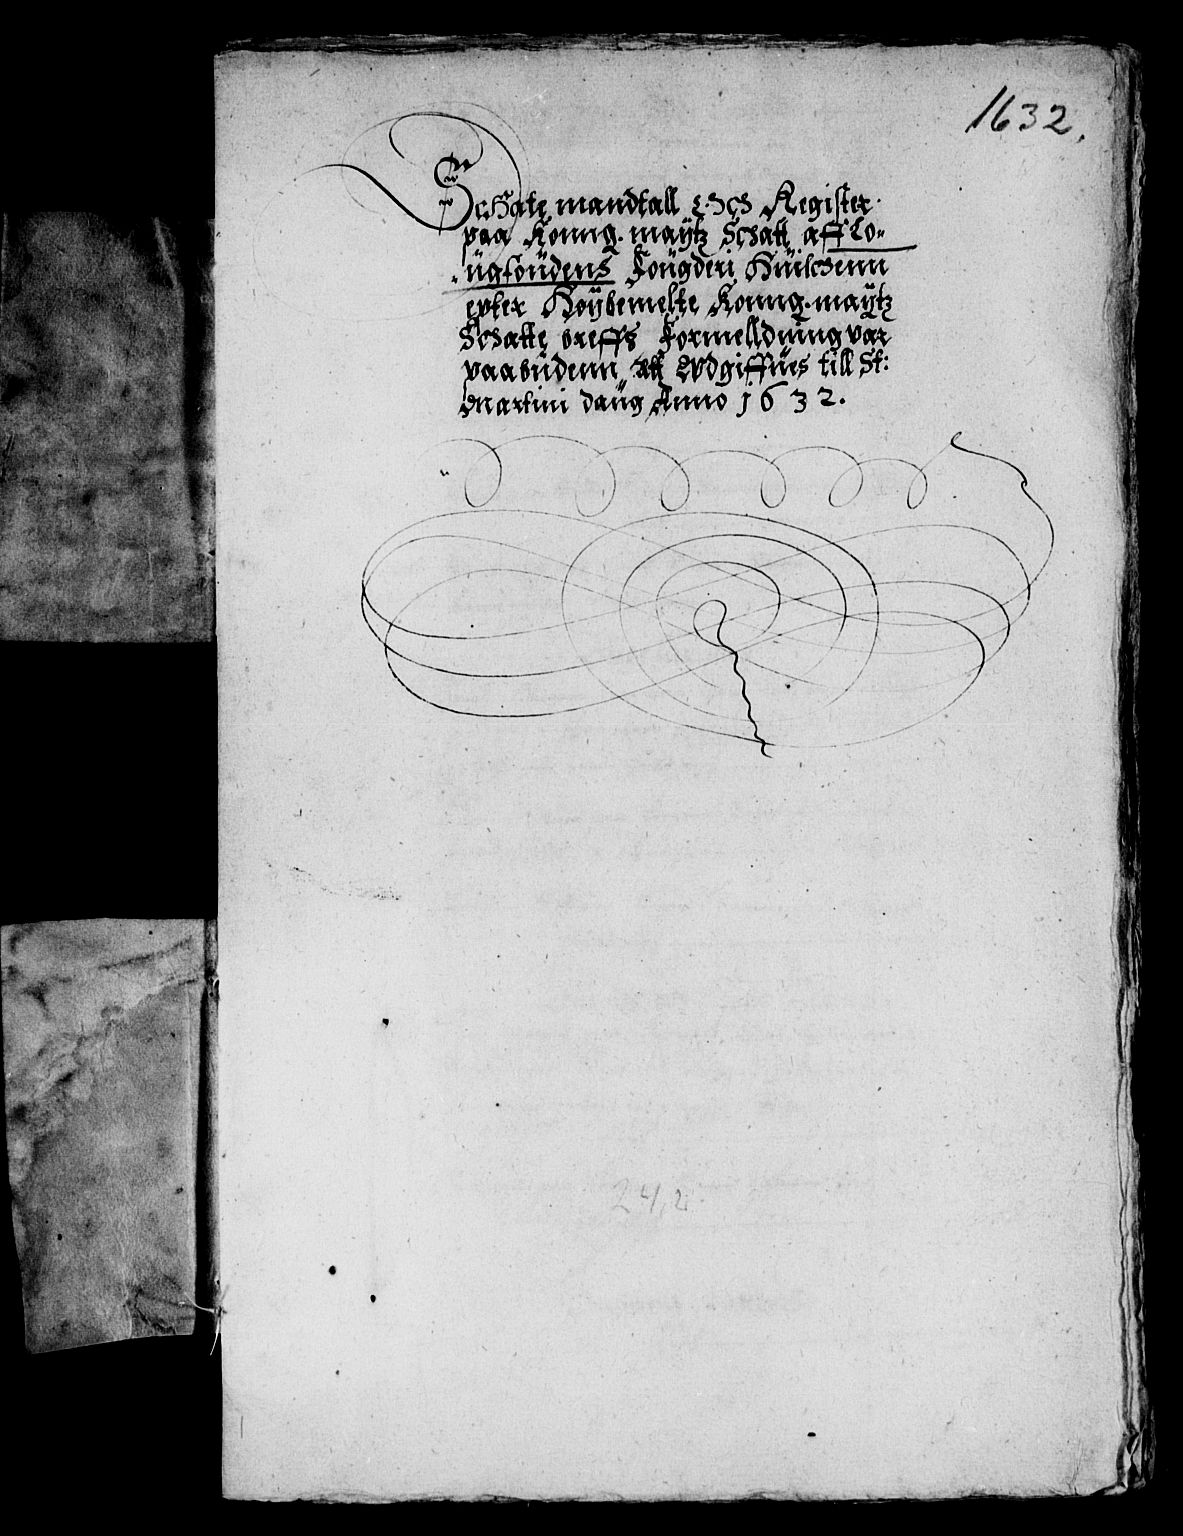 1632.
Schate mandtall Och Register
paa Konng. maÿtz Schatt aff Lo-
ügfoüdens Foügderi Huilchenn
epter Høÿbemelte Konng. maÿtz
Schatte breffs Formelldning var
paabudenn att Vdgiffues till St:
Martini daüg Anno 1632.
24,2